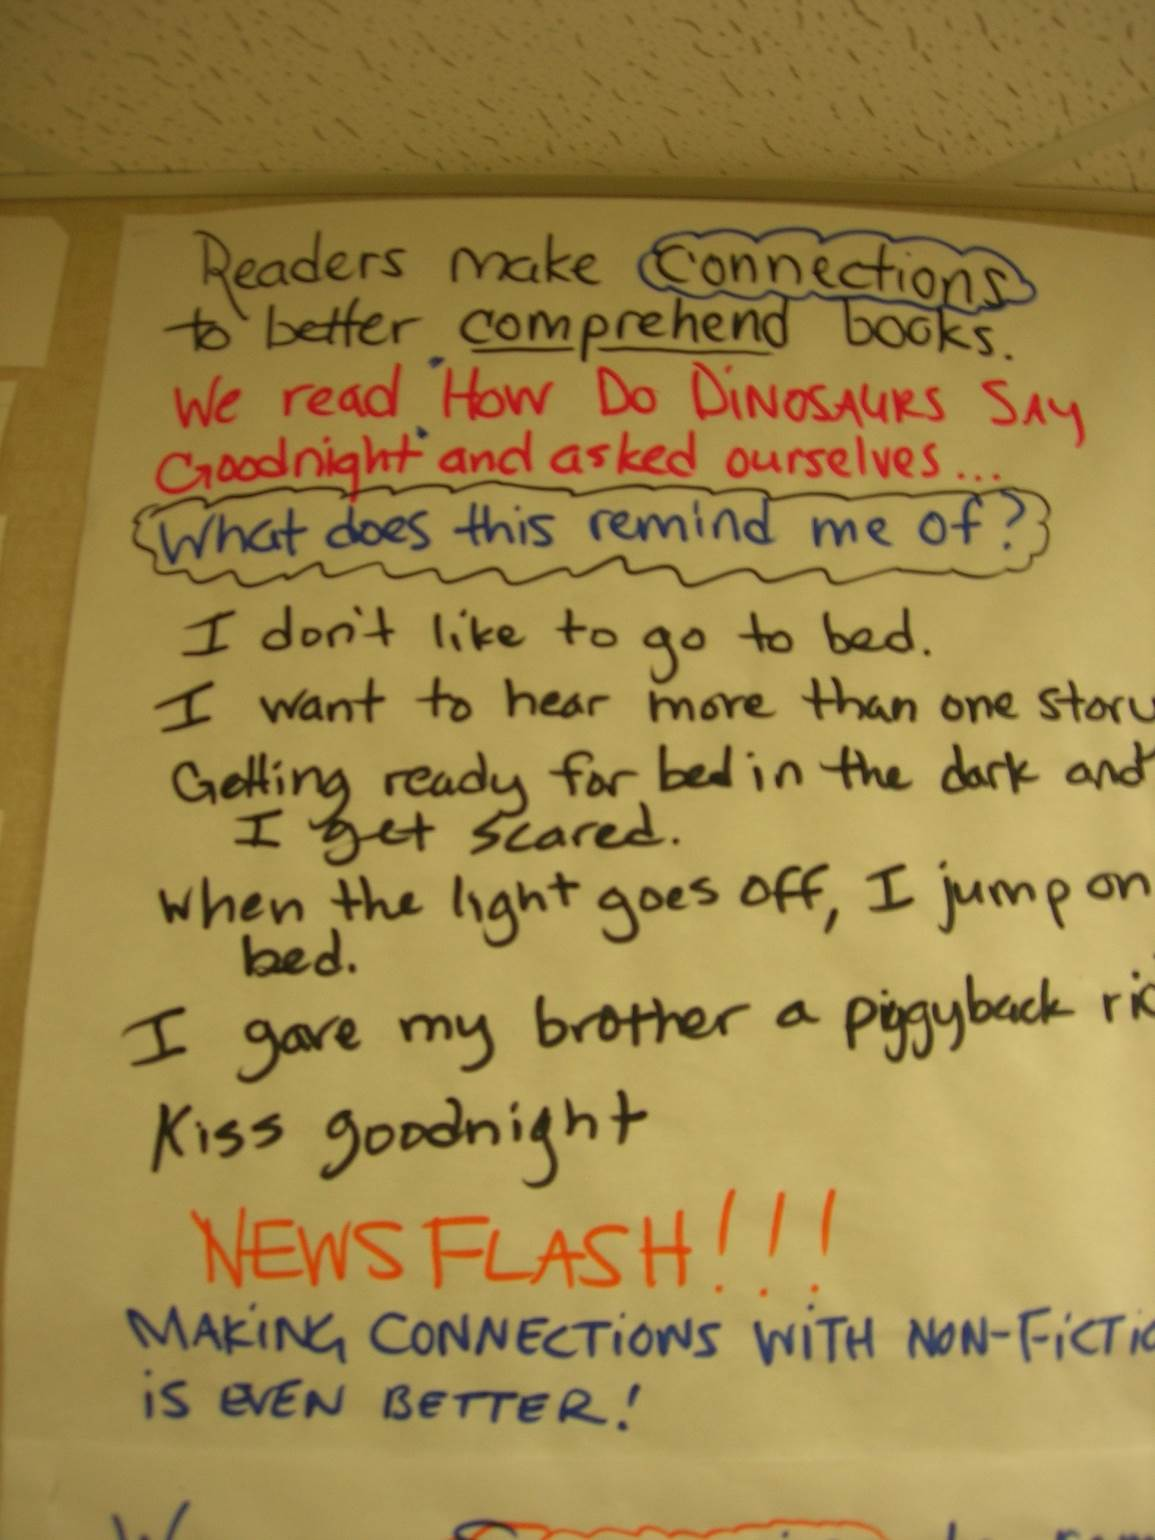 Readers make Connections
to better comprehend books.
We read "How Do DiNOSAURS SAy
Goodnight" and asked ourselves...
What does this remind me of?
I don't like to go to bed.
I want to hear more than one story
Getting ready for bed in the dark and
I get scared.
When the light goes off, I jump on
bed.
I gave my brother a piggyback
Kiss goodnight
NEWS FLASH!!!
MAKiNG CONNECTiONS WiTH NON-FiCTiO
iS EVEN BETTER!